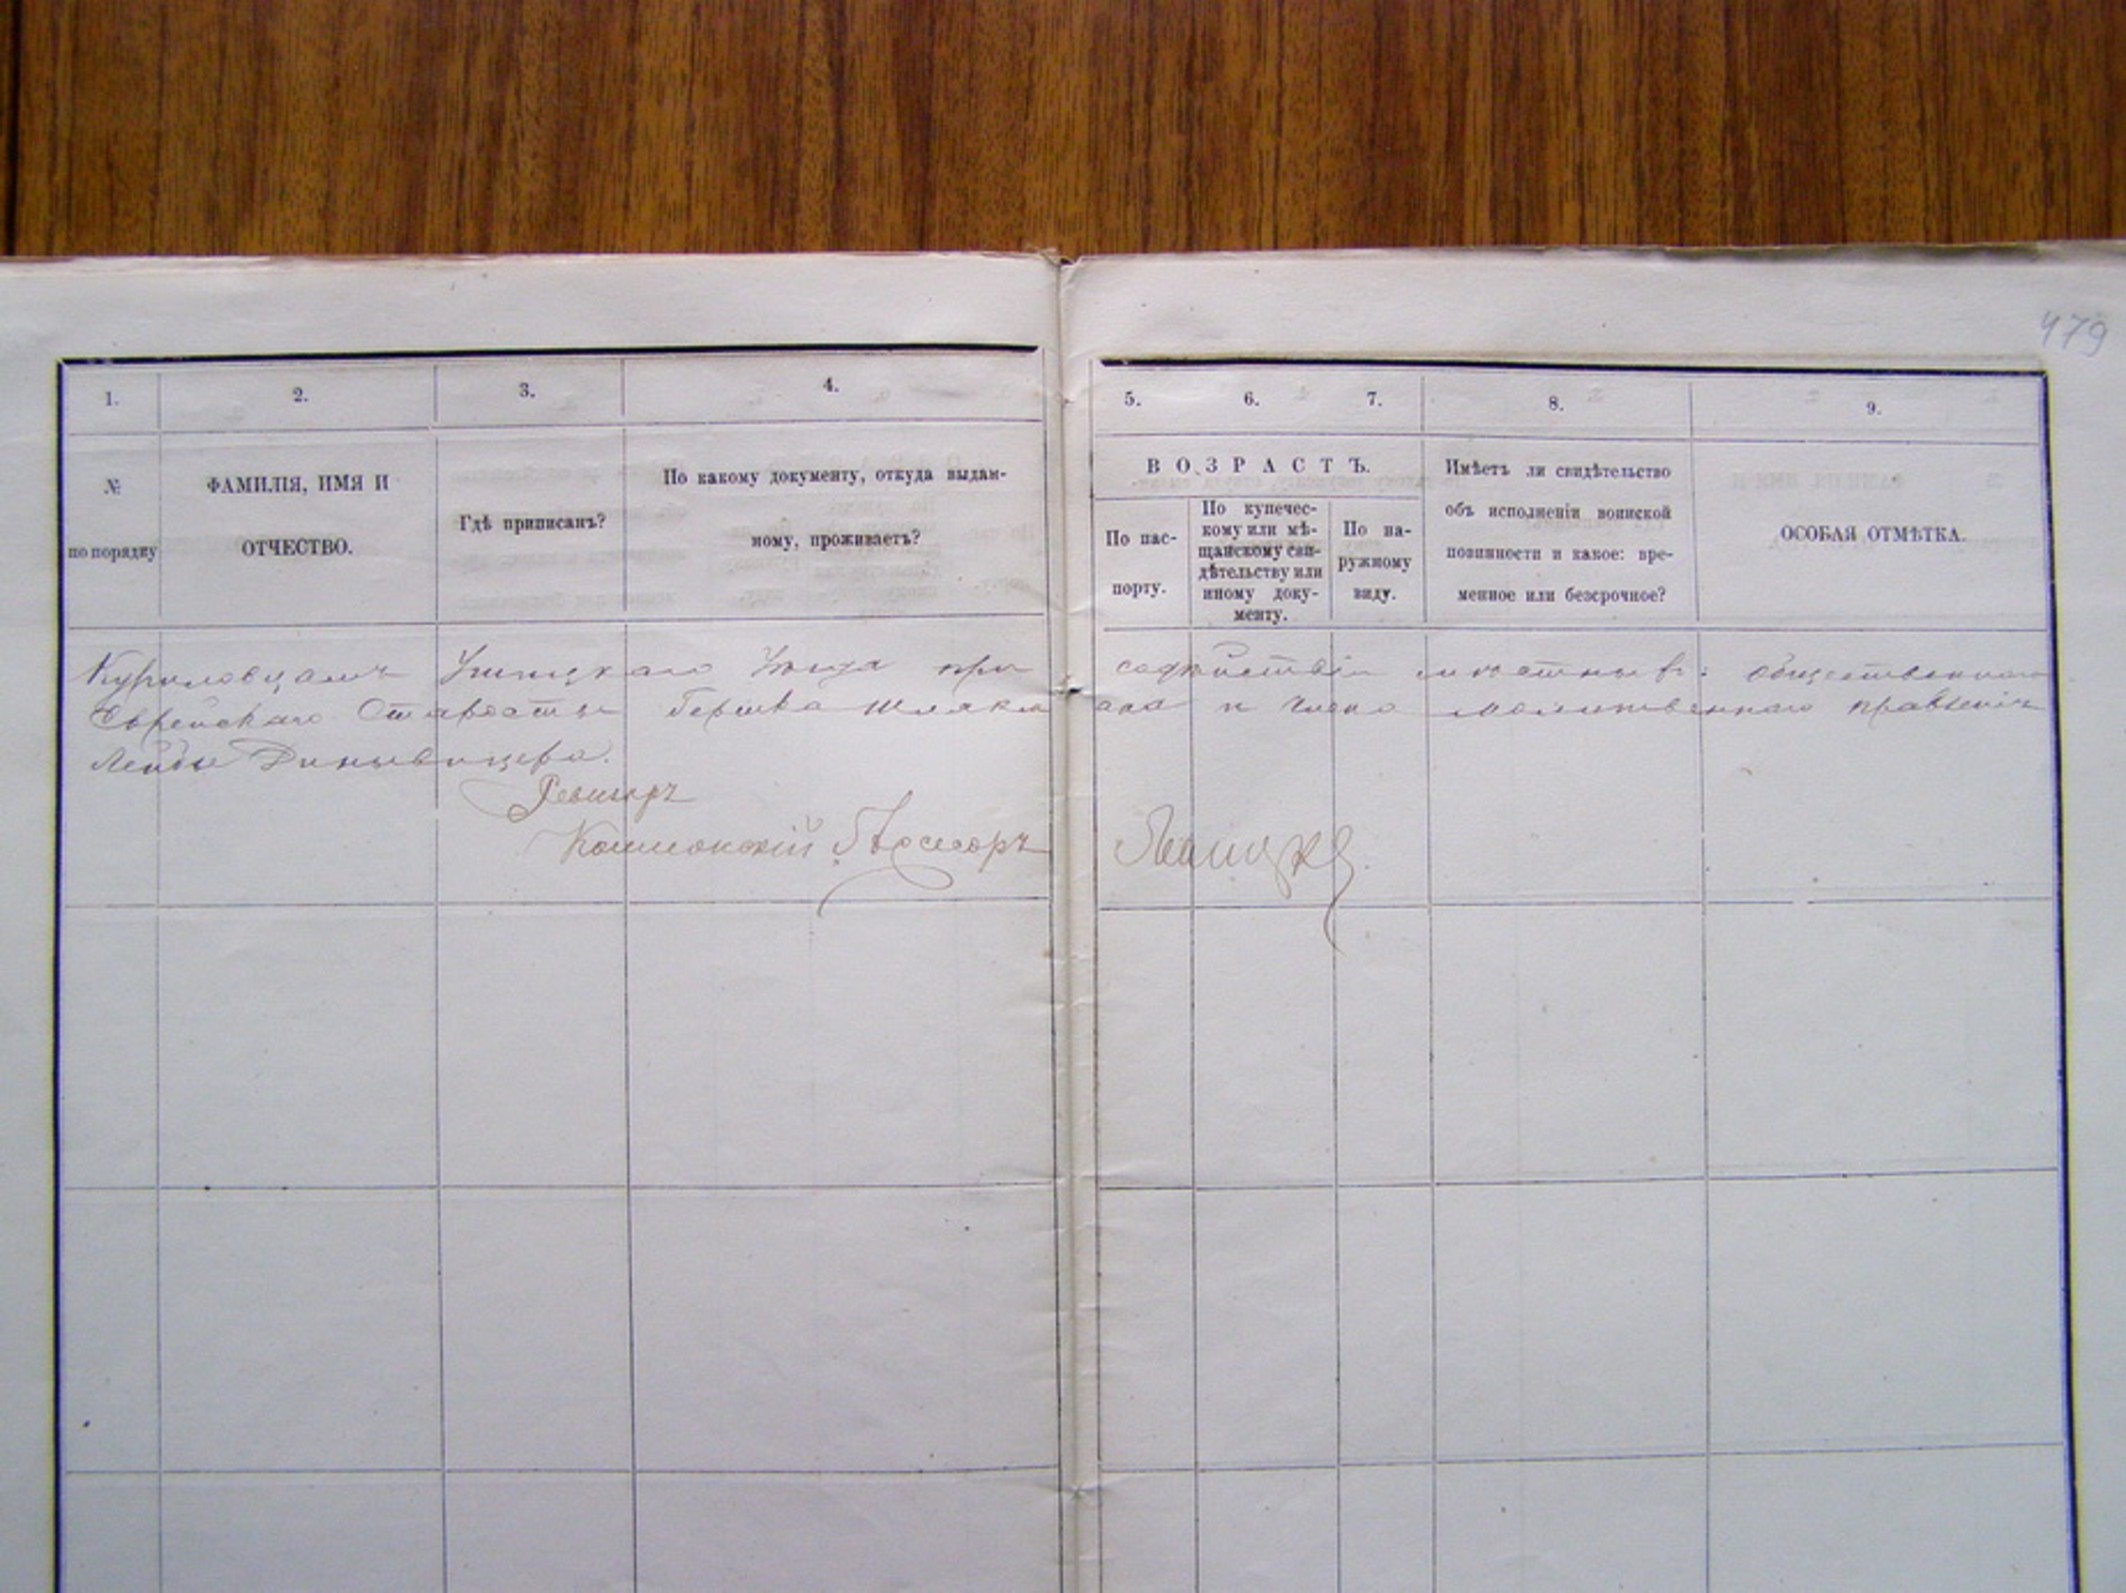 479
1.
2.
3.
4.
5.
6.
7.
8.
9.
№
по порядку
ФАМИЛІЯ, ИМЯ И
ОТЧЕСТВО.
Гдѣ приписанъ?
По какому документу, откуда выдан-
ному, проживаетъ?
ВОЗРАСТЪ.
По пас-
порту.
По купечес-
кому или мѣ-
щанскому сви-
дѣтельству или
иному доку-
менту.
По на-
ружному
виду.
Имѣетъ ли свидѣтельство
объ исполненіи воинской
повинности и какое: вре-
менное или безсрочное?
ОСОБАЯ ОТМѢТКА.
Куриловцахъ Ушицкаго Уѣзда при содѣйствіи мѣстныхъ: общественнаго
Еврейскаго Старосты Гершка и Члена молитвеннаго правленія
Лейбы
Ревизоръ